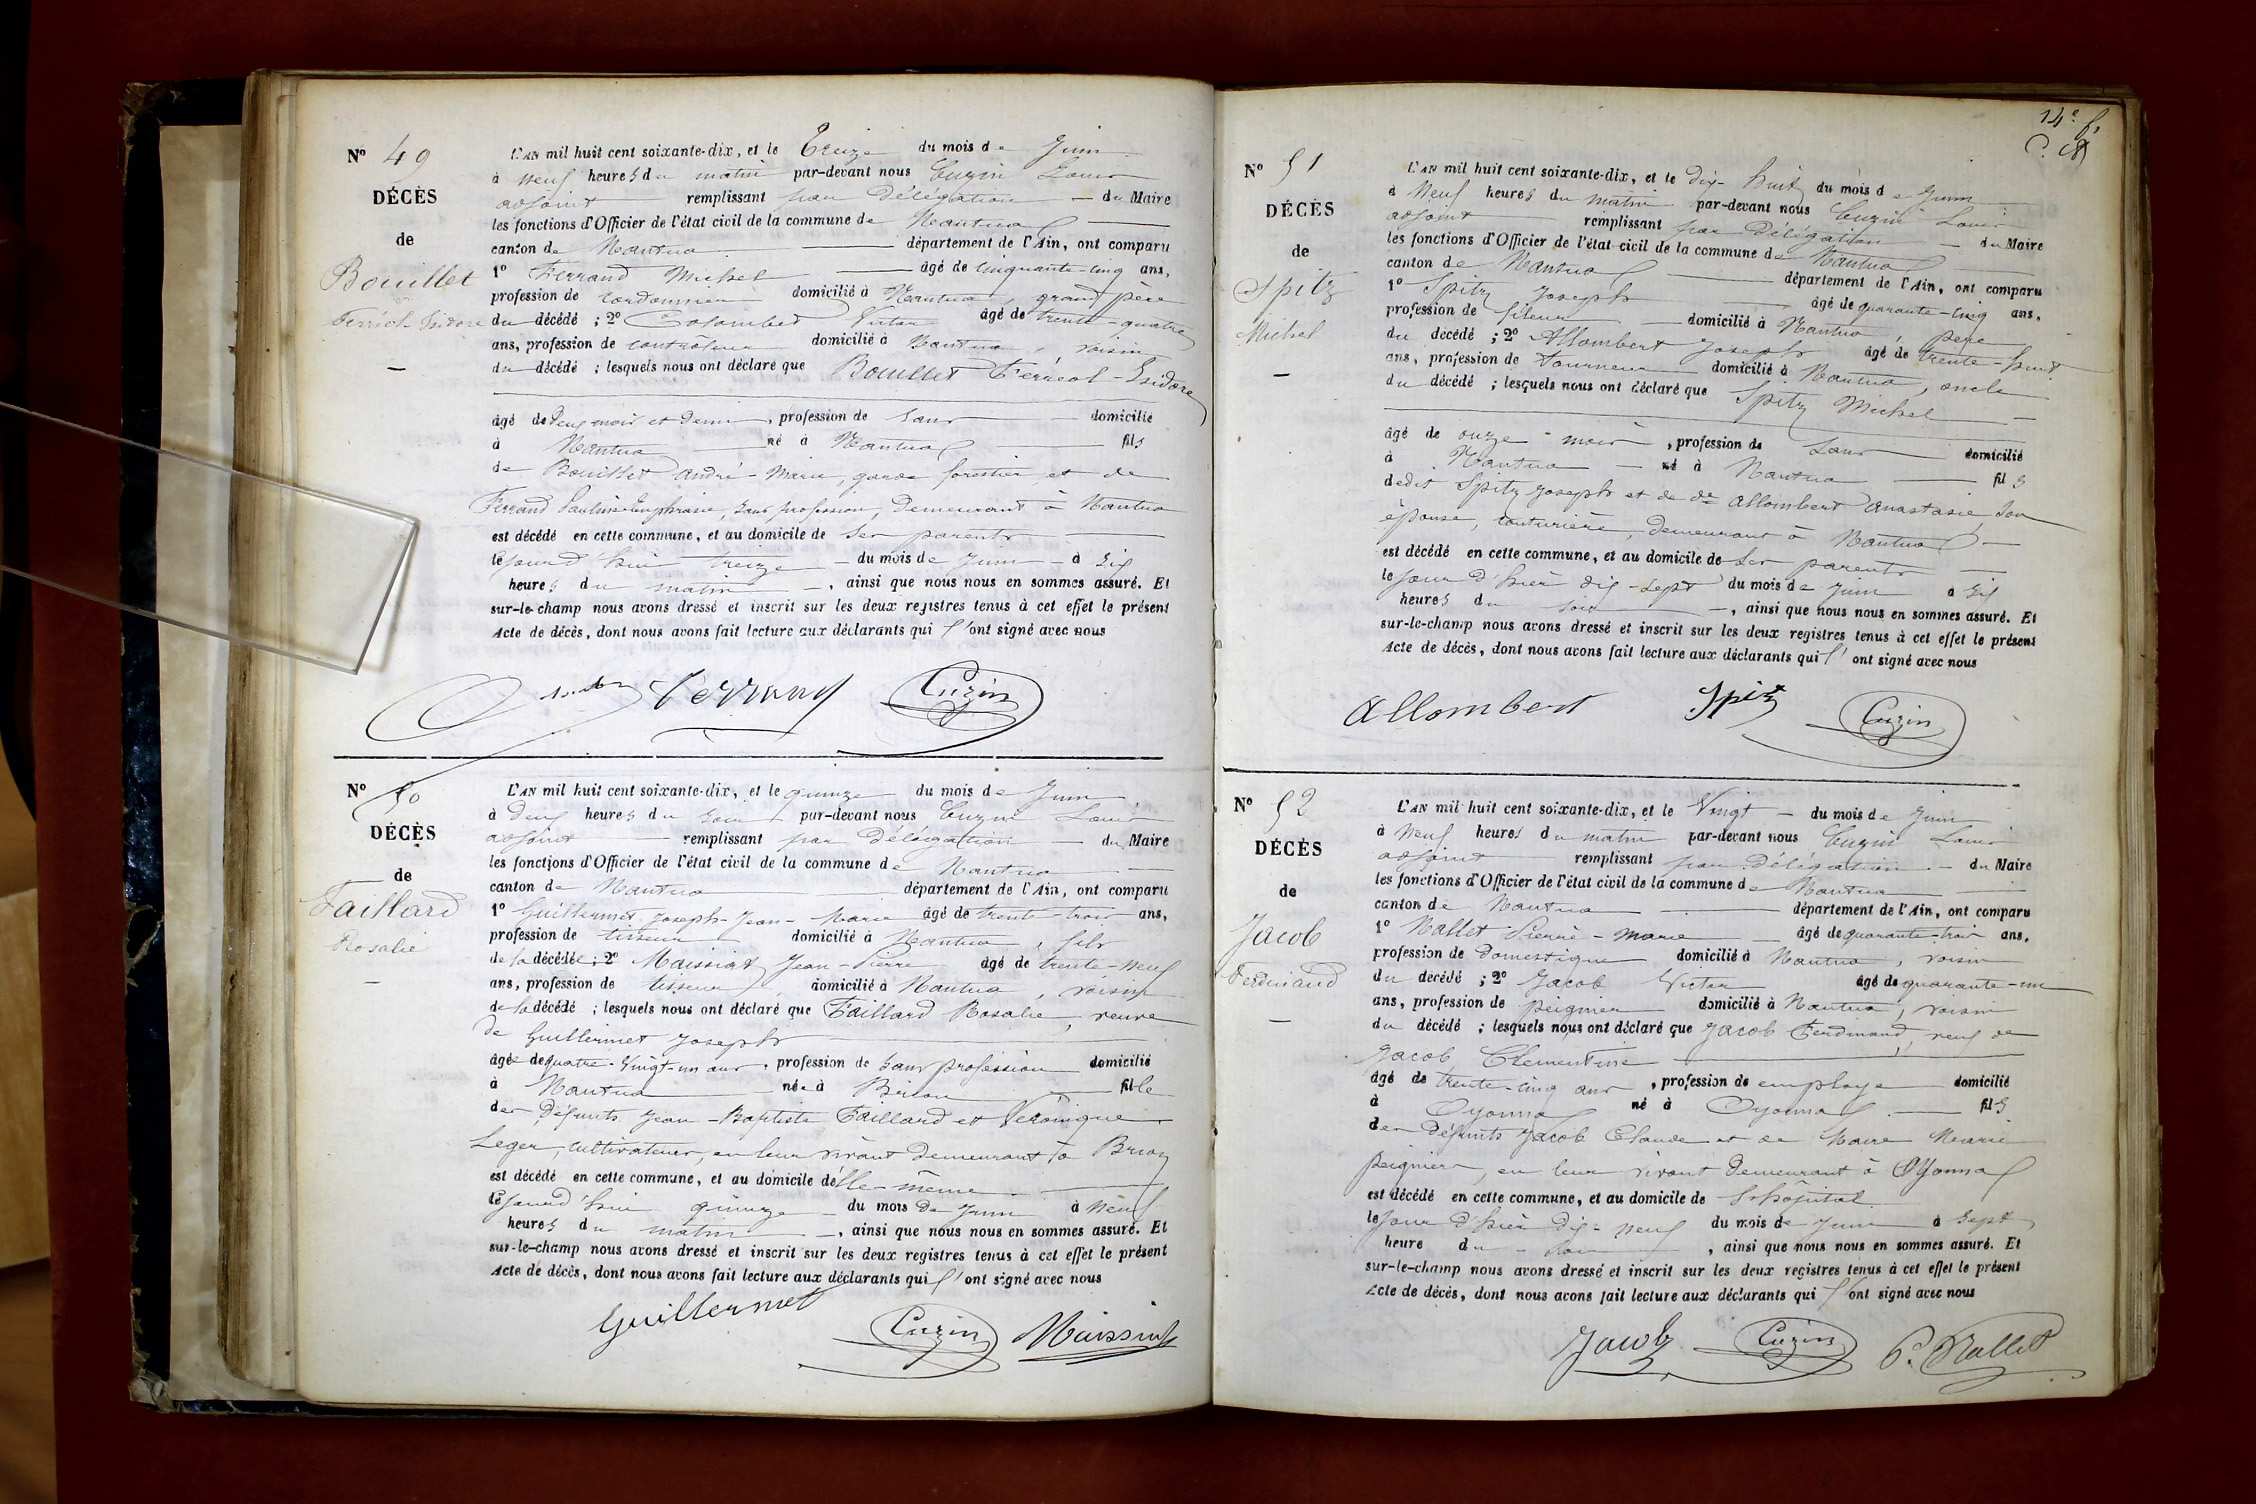 Nº 49
DÉCÈS
de
Bouillet
Ferréol Isidore
L'AN mil huit cent soixante-dix, et le Treize du mois de Juin
à neuf heures du matin par-devant nous Cuzin Louis
adjoint remplissant par Délégation du Maire
les fonctions d'Officier de l'état civil de la commune de Nantua
canton de Nantua département de l'Ain, ont comparu
1º Ferrand Michel âgé de cinquante-cinq ans,
profession de cordonnier domicilié à Nantua, grand père
du décédé ; 2º Colombet Victor âgé de trente-quatre
ans, profession de controleur domicilié à Nantua, voisin
du décédé ; lesquels nous ont déclaré que Bouillet Ferréol-Isidore
âgé de Deux mois et demi, profession de Sans domicilié
à Nantua né à Nantua fils
de Bouillet André-Marie, garde forestier et de
Ferrand Pauline Euphrasie, sans profession, Demeurant à Nantua
est décédé en cette commune, et au domicile de ses parents
le Jourd'hui treize du mois de Juin à Six
heures du matin, ainsi que nous nous en sommes assuré. Et
sur-le-champ nous avons dressé et inscrit sur les deux registres tenus à cet effet le présent
Acte de décès, dont nous avons fait lecture aux déclarants qui l'ont signé avec nous
Ferrand Cuzin
Nº 50
DÉCÈS
de
Faillard
Rosalie
L'AN mil huit cent soixante-dix, et le quinze du mois de Juin
à deux heures du Soir par-devant nous Cuzin Louis
adjoint remplissant par Délégation du Maire
les fonctions d'Officier de l'état civil de la commune de Nantua
canton de Nantua département de l'Ain, ont comparu
1º Guillermet Joseph-Jean-Marie âgé de trente-trois ans,
profession de tisseur domicilié à Nantua, fils
de la décédée ; 2º Maissiat Jean-Pierre âgé de trente-neuf
ans, profession de tisseur domicilié à Nantua, voisin
de la décédé ; lesquels nous ont déclaré que Faillard Rosalie, veuve
de Guillermet Joseph
âgée de quatre-Vingt-un ans, profession de Sans profession domicilié
à Nantua née à Brion fille
des Défunts Jean-Baptiste Faillard et Véronique
Leger, cultivateurs, en leur vivant Demeurant à Brion
est décédé en cette commune, et au domicile d'elle-même
le Jourd'hui quinze du mois de Juin à Neuf
heures du matin, ainsi que nous nous en sommes assuré. Et
sur-le-champ nous avons dressé et inscrit sur les deux registres tenus à cet effet le présent
Acte de décès, dont nous avons fait lecture aux déclarants qui l'ont signé avec nous
Guillermet Cuzin Maissiat
14e f.
Nº 51
DÉCÈS
de
Spitz
Michel
L'AN mil huit cent soixante-dix, et le dix-huit du mois de Juin
à Neuf heures du matin par-devant nous Cuzin Louis
adjoint remplissant par Délégation du Maire
les fonctions d'Officier de l'état civil de la commune de Nantua
canton de Nantua département de l'Ain, ont comparu
1º Spitz Joseph âgé de quarante-cinq ans,
profession de fileur domicilié à Nantua, père
du décédé ; 2º Allombert Joseph âgé de trente-huit
ans, profession de tourneur domicilié à Nantua, oncle
du décédé ; lesquels nous ont déclaré que Spitz Michel
âgé de onze mois, profession de Sans domicilié
à Nantua né à Nantua fils
dedit Spitz Joseph et de de Allombert Anastasie, son
épouse, couturière, demeurant à Nantua
est décédé en cette commune, et au domicile de ses parents
le Jour d'hier dix-sept du mois de Juin à Six
heures du soir, ainsi que nous nous en sommes assuré. Et
sur-le-champ nous avons dressé et inscrit sur les deux registres tenus à cet effet le présent
Acte de décès, dont nous avons fait lecture aux déclarants qui l'ont signé avec nous
Allombert Spitz Cuzin
Nº 52
DÉCÈS
de
Jacob
Ferdinand
L'AN mil huit cent soixante-dix, et le Vingt du mois de Juin
à Neuf heures du matin par-devant nous Cuzin Louis
adjoint remplissant par Délégation du Maire
les fonctions d'Officier de l'état civil de la commune de Nantua
canton de Nantua département de l'Ain, ont comparu
1º Nallet Pierre-Marie âgé de quarante-trois ans,
profession de Domestique domicilié à Nantua, voisin
du décédé ; 2º Jacob Victor âgé de quarante-un
ans, profession de peignier domicilié à Nantua, voisin
du décédé ; lesquels nous ont déclaré que Jacob Ferdinand, veuf de
Jacob Clementine
âgé de trente-cinq ans, profession de employé domicilié
à Oyonnax né à Oyonnax fils
des Défunts Jacob Claude et de Maire Marie
peigniers, en leur vivant Demeurant à Oyonnax
est décédé en cette commune, et au domicile de l'hôpital
le Jour d'hier dix-neuf du mois de Juin à Sept
heure du Soir, ainsi que nous nous en sommes assuré. Et
sur-le-champ nous avons dressé et inscrit sur les deux registres tenus à cet effet le présent
Acte de décès, dont nous avons fait lecture aux déclarants qui l'ont signé avec nous
Jacob Cuzin P. Nallet